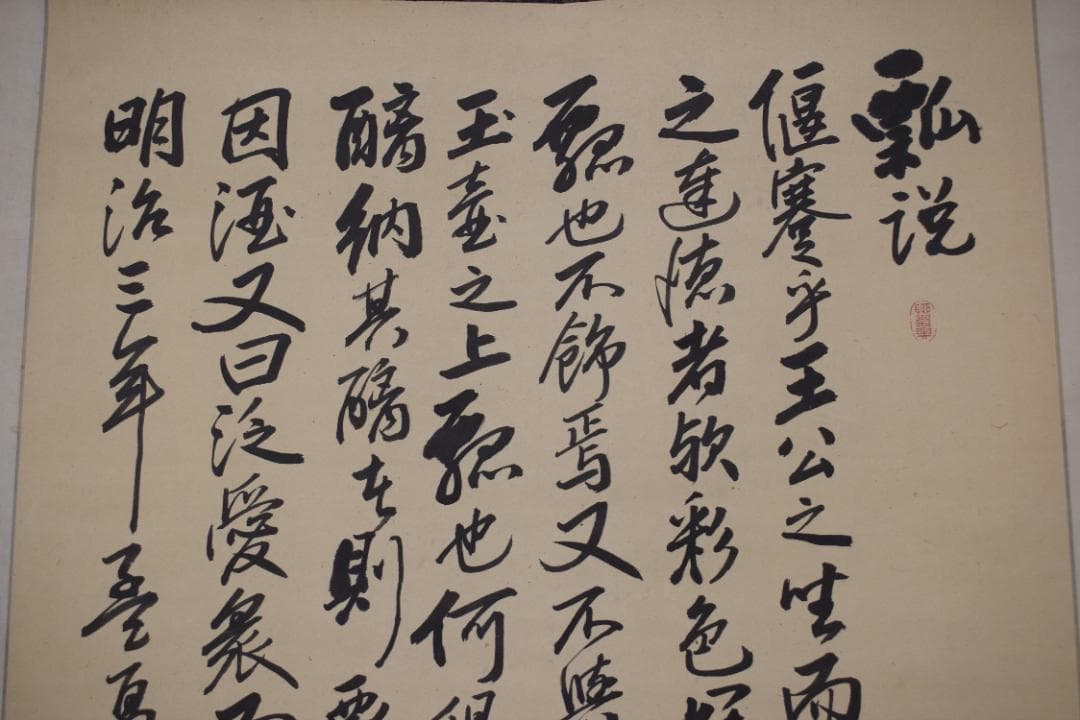 瓢説
偃蹇乎王公之坐而
之達德者歟彩色
瓢也不飾焉又不
玉壺之上瓢也何
醨納其醨者則
因酒又曰泛愛衆而
明治三年孟夏